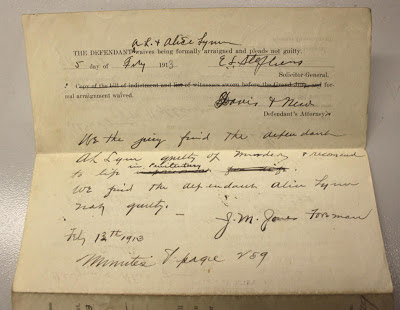 A.L. & Alice Lynn
THE DEFENDANT waives being formally arraigned and pleads not guilty.
5 day of July 1913 E.S. Stephens
Solicitor-General.
Copy of the bill of indictment and list of witnesses sworn before the Grand Jury, and for-
mal arraignment waived.
Davis &
Defendant's Attorney
We the jury find the defendant
A L Lynn guilty of Murder & recomend
to life in Penitentiary
We find the defendant Alice Lynn
not guilty.
J. M. Jones Forsman
July 12th 1913
Minutes T page 259